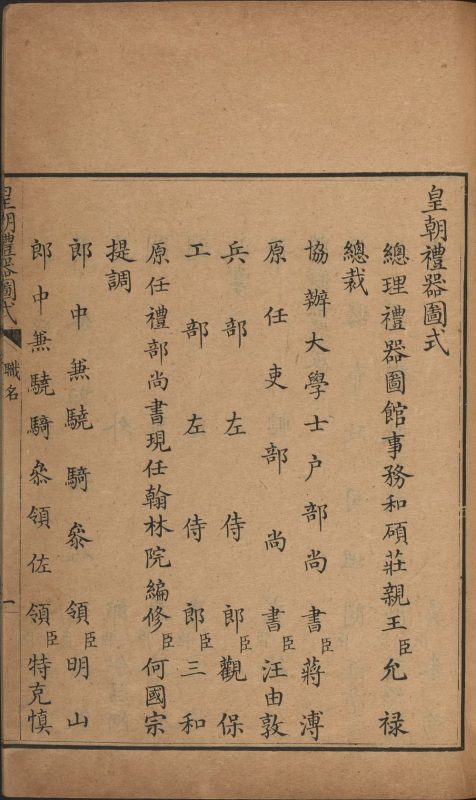 皇朝禮器圖式
總理禮器圖館事務和碩莊親王臣允祿
總裁
協辦大學士户部尚書臣蔣溥
原任吏部尚書臣汪由敦
兵部左侍郎臣觀保
工部左侍郎臣三和
原任禮部尚書現任翰林院編修臣何國宗
提調
郎中兼驍騎叅領臣明山
郎中兼驍騎叅領佐領臣特克慎
皇朝禮器圖式
職名
一